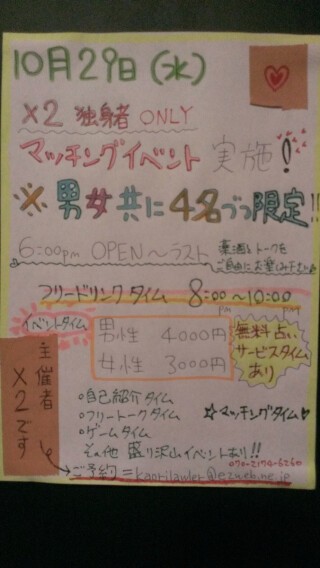 10月29日(水)
×2 独身者 ONLY
マッチングイベント 実施!
※ 男女共に4名づつ限定!!
6:00pm OPEN〜ラスト
お酒とトークを
ご自由にお楽しみ下さい
フリードリンクタイム 8:00〜10:00
pm pm
イベントタイム
男性 4000円
女性 3000円
無料占い
サービスタイム
あり
主催者
×2です
○自己紹介タイム
○フリートークタイム
☆マッチングタイム♡
○ゲームタイム
その他 盛り沢山イベントあり!!
ご予約=kaorilawler@ezweb.ne.jp